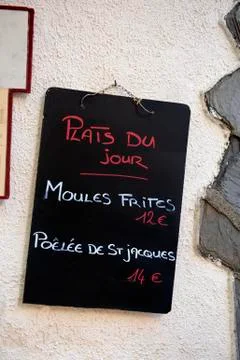 PLATS DU
JOUR
MOULES FRITES
12€
POÊLÉE DE ST JACQUES
14€